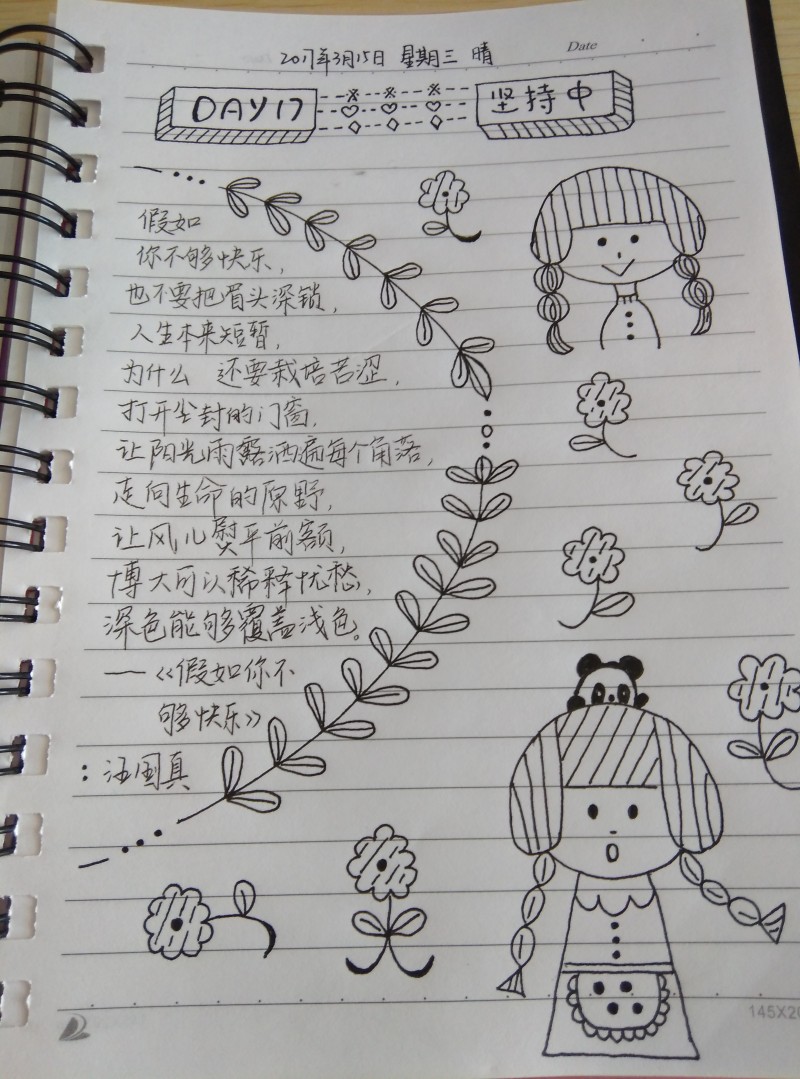 2017年3月15日 星期三 晴
Date
DAY 17
坚持中
假如
你不够快乐，
也不要把眉头深锁，
人生本来短暂，
为什么 还要栽培苦涩，
打开尘封的门窗，
让阳光雨露洒遍每个角落，
走向生命的原野，
让风儿熨平前额，
博大可以稀释忧愁，
深色能够覆盖浅色。
——《假如你不
够快乐》
：汪国真